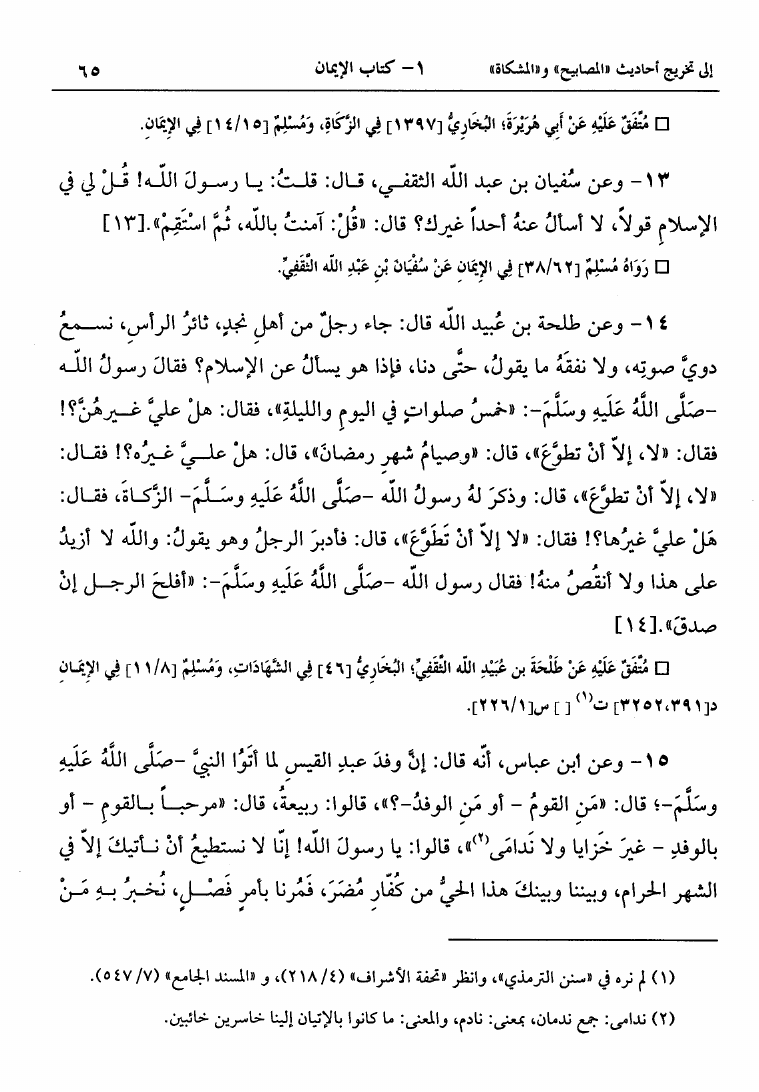 إلى تخريج أحاديث «المصابيح» و«المشكاة» ١- كتاب الإيمان ٦٥
□ مُتَّفَقٌ عَلَيْهِ عَنْ أَبِي هُرَيْرَةَ؛ البُخَارِيُّ [١٣٩٧] فِي الزَّكَاةِ، وَمُسْلِمٌ [١٤/١٥] فِي الإِيمَانِ.
١٣- وعن سُفيان بن عبد الله الثقفي، قال: قلتُ: يا رسولَ اللَّه! قُلْ لي في
الإسلامِ قولاً، لا أسألُ عنهُ أحداً غيرك؟ قال: «قُلْ: آمنتُ باللَّه، ثُمَّ اسْتَقِمْ».[١٣]
□ رَوَاهُ مُسْلِمٌ [٣٨/٦٢] فِي الإِيمَانِ عَنْ سُفْيَانَ بْنِ عَبْدِ اللَّه الثَّقَفِيِّ.
١٤- وعن طلحة بن عُبيد اللَّه قال: جاء رجلٌ من أهلِ نجدٍ، ثائرُ الرأسِ، نسمعُ
دويَّ صوتِه، ولا نفقَهُ ما يقولُ، حتَّى دنا، فإذا هو يسألُ عن الإسلام؟ فقالَ رسولُ اللَّه
-صَلَّى اللَّهُ عَلَيْهِ وسَلَّمَ-: «خمسُ صلواتٍ في اليومِ والليلةِ»، فقال: هلْ عليَّ غيرهُنَّ؟!
فقال: «لا، إلاَّ أنْ تطوَّعَ»، قال: «وصيامُ شهرِ رمضانَ»، قال: هلْ عليَّ غيرُه؟! فقال:
«لا، إلاَّ أنْ تطوَّعَ»، قال: وذكرَ لهُ رسولُ اللَّه -صَلَّى اللَّهُ عَلَيْهِ وسَلَّمَ- الزَّكاةَ، فقال:
هَلْ عليَّ غيرُها؟! فقال: «لا إلاَّ أنْ تَطَوَّعَ»، قال: فأدبرَ الرجلُ وهو يقولُ: واللَّه لا أزيدُ
على هذا ولا أنقُصُ منهُ! فقال رسول اللَّه -صَلَّى اللَّهُ عَلَيْهِ وسَلَّمَ-: «أفلحَ الرجل إنْ
صدقَ».[١٤]
□ مُتَّفَقٌ عَلَيْهِ عَنْ طَلْحَةَ بن عُبَيْدِ اللَّه الثَّقَفِيِّ؛ البُخَارِيُّ [٤٦] فِي الشَّهَادَاتِ، وَمُسْلِمٌ [١١/٨] فِي الإِيمَانِ
د[٣٢٥٢،٣٩١] ت(١) [ ] س[٢٢٦/١].
١٥- وعن ابن عباس، أنَّه قال: إنَّ وفدَ عبدِ القيسِ لما أتَوُا النبيَّ -صَلَّى اللَّهُ عَلَيْهِ
وسَلَّمَ-؛ قال: «مَنِ القومُ - أو مَنِ الوفدُ-؟»، قالوا: ربيعةُ، قال: «مرحباً بالقومِ - أو
بالوفدِ - غيرَ خَزايا ولا نَدامَى(٢)»، قالوا: يا رسولَ اللَّه! إنَّا لا نستطيعُ أنْ نأتيكَ إلاَّ في
الشهر الحرام، وبيننا وبينكَ هذا الحيُّ من كُفَّارِ مُضَرَ، فَمُرنا بأمرٍ فَصْلٍ، نُخبرُ بهِ مَنْ
(١) لم نره في «سنن الترمذي»، وانظر «تحفة الأشراف» (٢١٨/٤)، و «المسند الجامع» (٥٤٧/٧).
(٢) ندامى: جمع ندمان، بمعنى: نادم، والمعنى: ما كانوا بالإتيان إلينا خاسرين خائبين.